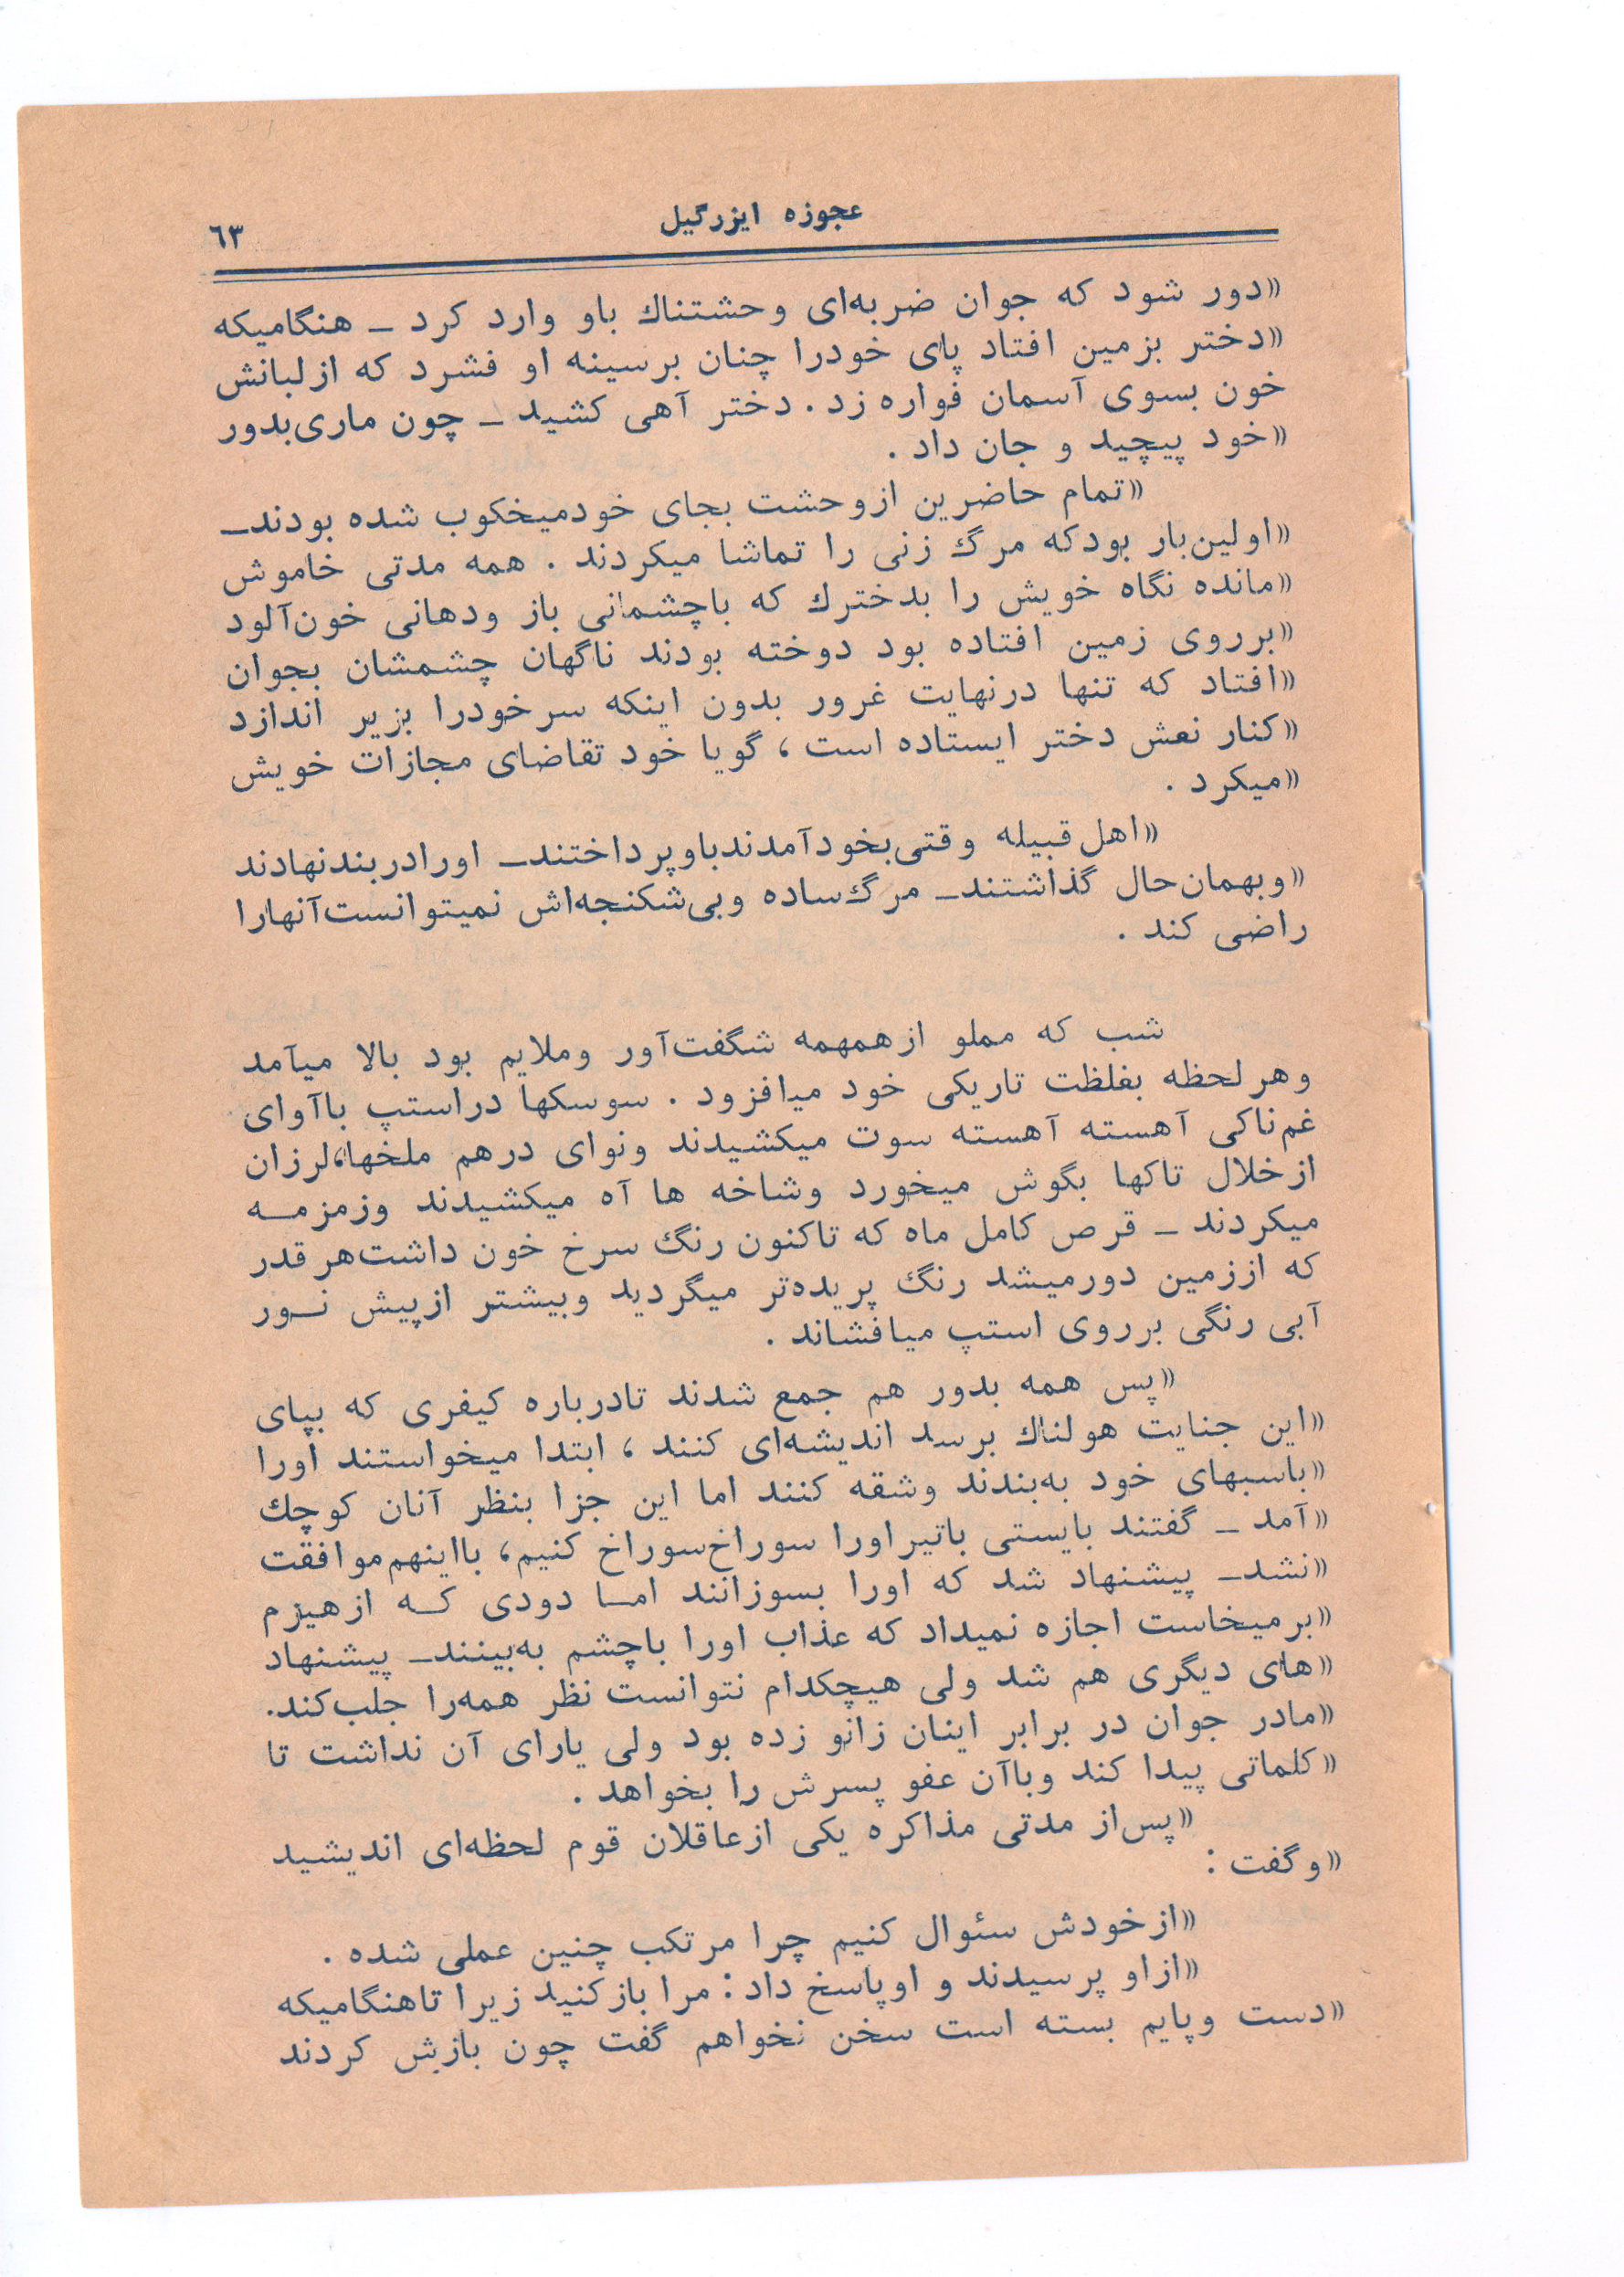 عجوزه ایزرگیل
٦٣
«دور شود که جوان ضربه‌ای وحشتناك باو وارد کرد ـ هنگامیکه
«دختر بزمین افتاد پای خودرا چنان برسینه او فشرد که ازلبانش
خون بسوی آسمان فواره زد . دختر آهی کشید ـ چون ماری‌بدور
«خود پیچید و جان داد .
«تمام حاضرین ازوحشت بجای خودمیخکوب شده بودندـ
«اولین‌بار بودکه مرگ زنی را تماشا میکردند . همه مدتی خاموش
«مانده نگاه خویش را بدخترك که باچشمانی باز ودهانی خون‌آلود
«برروی زمین افتاده بود دوخته بودند ناگهان چشمشان بجوان
«افتاد که تنها درنهایت غرور بدون اینکه سرخودرا بزیر اندازد
«کنار نعش دختر ایستاده است ، گویا خود تقاضای مجازات خویش
«میکرد .
«اهل قبیله وقتی‌بخودآمدندباوپرداختندـ اورادربندنهادند
«وبهمان‌حال گذاشتندـ مرگ‌ساده وبی‌شکنجه‌اش نمیتوانست‌آنهارا
راضی کند .
شب که مملو ازهمهمه شگفت‌آور وملایم بود بالا میآمد
وهرلحظه بغلظت تاریکی خود میافزود . سوسکها دراستپ باآوای
غم‌ناکی آهسته آهسته سوت میکشیدند ونوای درهم ملخها،لرزان
ازخلال تاکها بگوش میخورد وشاخه ها آه میکشیدند وزمزمـه
میکردند ـ قرص کامل ماه که تاکنون رنگ سرخ خون داشت‌هرقدر
که اززمین دورمیشد رنگ پریده‌تر میگردید وبیشتر ازپیش نـور
آبی رنگی برروی استپ میافشاند .
«پس همه بدور هم جمع شدند تادرباره کیفری که بپای
«این جنایت هولناك برسد اندیشه‌ای کنند ، ابتدا میخواستند اورا
«باسبهای خود به‌بندند وشقه کنند اما این جزا بنظر آنان کوچك
«آمد ـ گفتند بایستی باتیراورا سوراخ‌سوراخ کنیم، بااینهم‌موافقت
«نشدـ پیشنهاد شد که اورا بسوزانند امـا دودی کـه ازهیزم
«برمیخاست اجازه نمیداد که عذاب اورا باچشم به‌بینندـ پیشنهاد
«های دیگری هم شد ولی هیچکدام نتوانست نظر همه‌را جلب‌کند.
«مادر جوان در برابر اینان زانو زده بود ولی یارای آن نداشت تا
«کلماتی پیدا کند وباآن عفو پسرش را بخواهد .
«پس‌از مدتی مذاکره یکی ازعاقلان قوم لحظه‌ای اندیشید
«وگفت :
«ازخودش سئوال کنیم چرا مرتکب چنین عملی شده .
«ازاو پرسیدند و اوپاسخ داد : مرا بازکنید زیرا تاهنگامیکه
«دست وپایم بسته است سخن نخواهم گفت چون بازش کردند